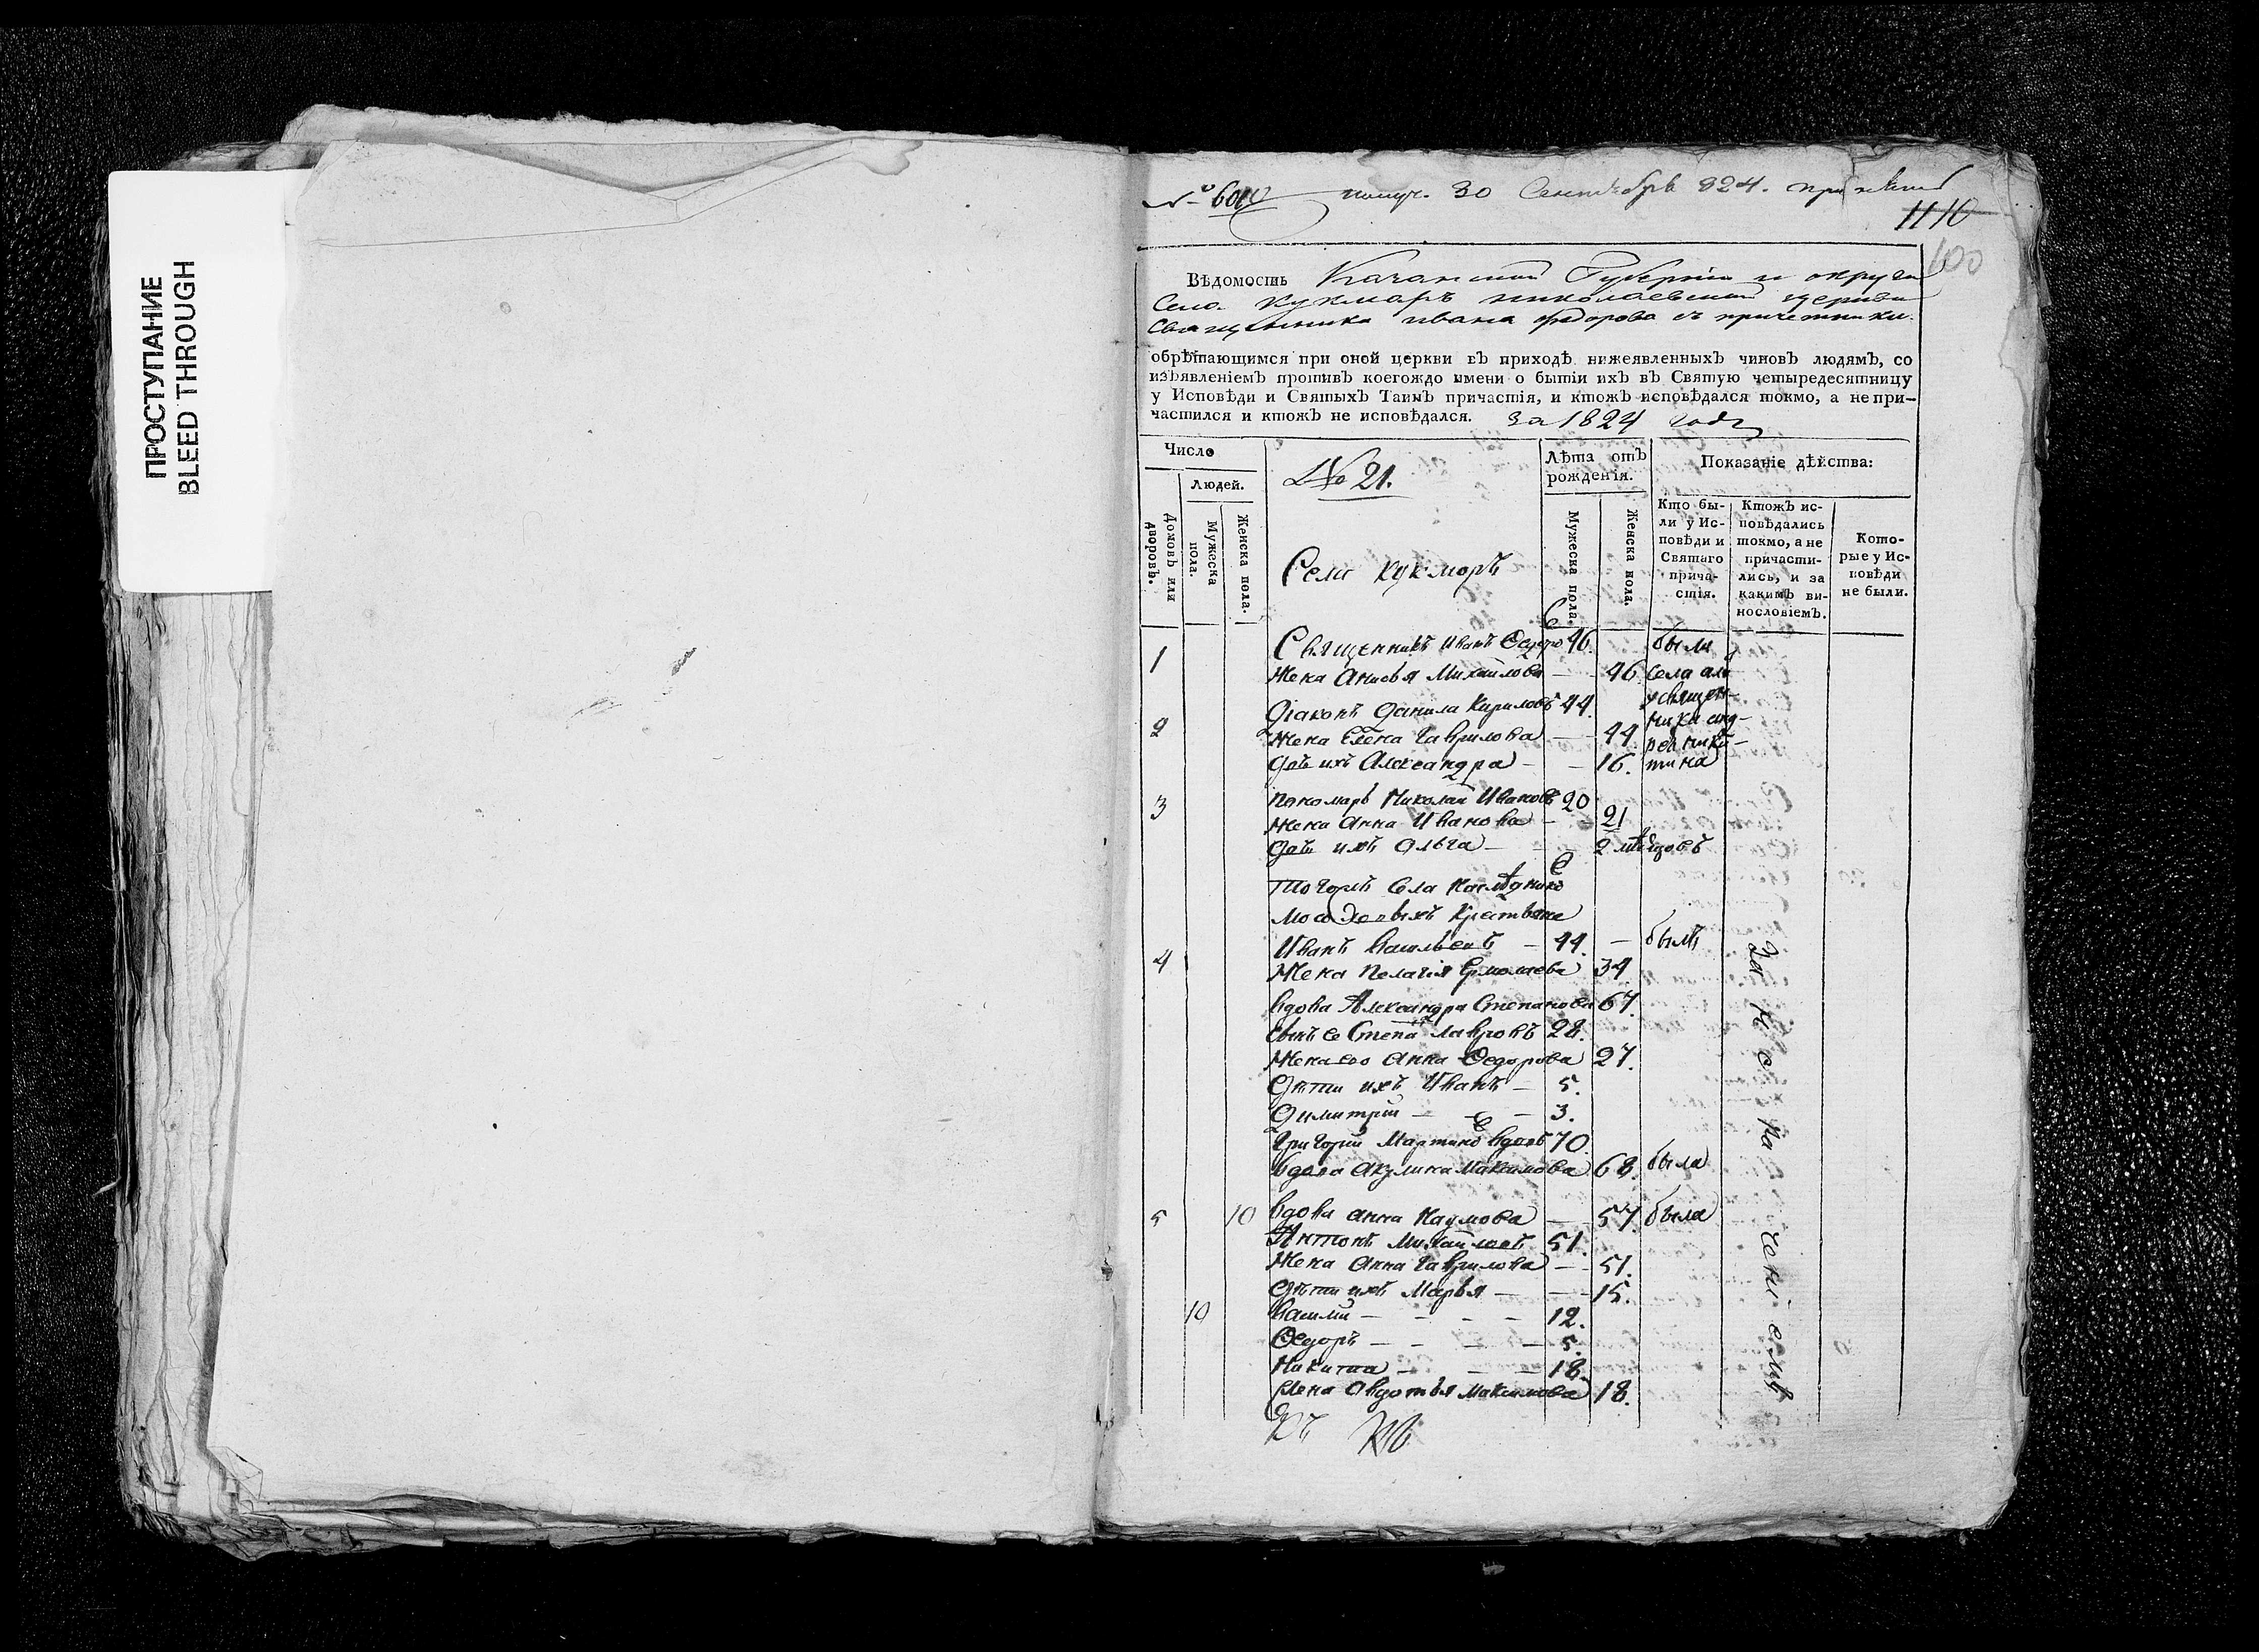 ПРОСТУПАНИЕ
BLEED THROUGH
№ 6010 получ. 30 Сентября 824. при
1110
100
Вѣдомость Казанской Губерніи и округи
Села Кукмаръ николаевской церкви
Священника ивана федорова съ причетники.
обрѣтающимся при оной церкви въ приходѣ нижеявленныхъ чиновъ людямъ, со
изъявленіемъ противъ коегождо имени о бытіи ихъ въ Святую четыредесятницу
у Исповѣди и Святыхъ Таинъ причастія, и ктожъ исповѣдался токмо, а не при-
частился и ктожъ не исповѣдался. за 1824 годъ
Число
Людей.
Домовъ или дворовъ.
Мужеска пола.
Женска пола.
№ 21.
Села Кукморъ
Лѣта отъ рожденія.
Мужеска пола.
Женска пола.
Показаніе дѣйства:
Кто бы-
ли у Ис-
повѣди и
Святаго
прича-
стія.
Ктожъ ис-
повѣдались
токмо, а не
причасти-
лись, и за
какимъ ви-
нословіемъ.
Кото-
рые у Ис-
повѣди
не были.
1 Священникъ Иванъ Ѳедоро 46. были
Жена Анисья Михайлова 46 села
2 Діаконъ Данила Кириловъ 44. у священ-
Жена Елена Гаврилова 44 ника анд-
рея ники-
Дчь ихъ Александра 16. тина
3 Пономарь Николай Ивановъ 20
Жена Анна Иванова 21
Дчь ихъ Ольга 2 мѣсяцовъ
Тогожъ Села Наслѣднико
Крестьяне
4 Иванъ Васильевъ 44. былъ
Жена Пелагія Ермолаева 34
Вдова Александра Степанова 67.
Сынъ ее Степа Лавровъ 28.
Жена ево Анна Ѳедорова 27.
Дѣти ихъ Иванъ 5.
Димитрій 3.
Григорій Мартино вдовъ 70.
Вдова Акулина Максимова 68. была
5 10 Вдова Анна Наумова 57. была
Антонъ Михайловъ 51.
Жена Анна Гаврилова 51.
Дѣти ихъ Марья 15.
10 Василій 12.
Ѳедоръ 5.
Никита 18.
Жена Авдотья Максимова 18.